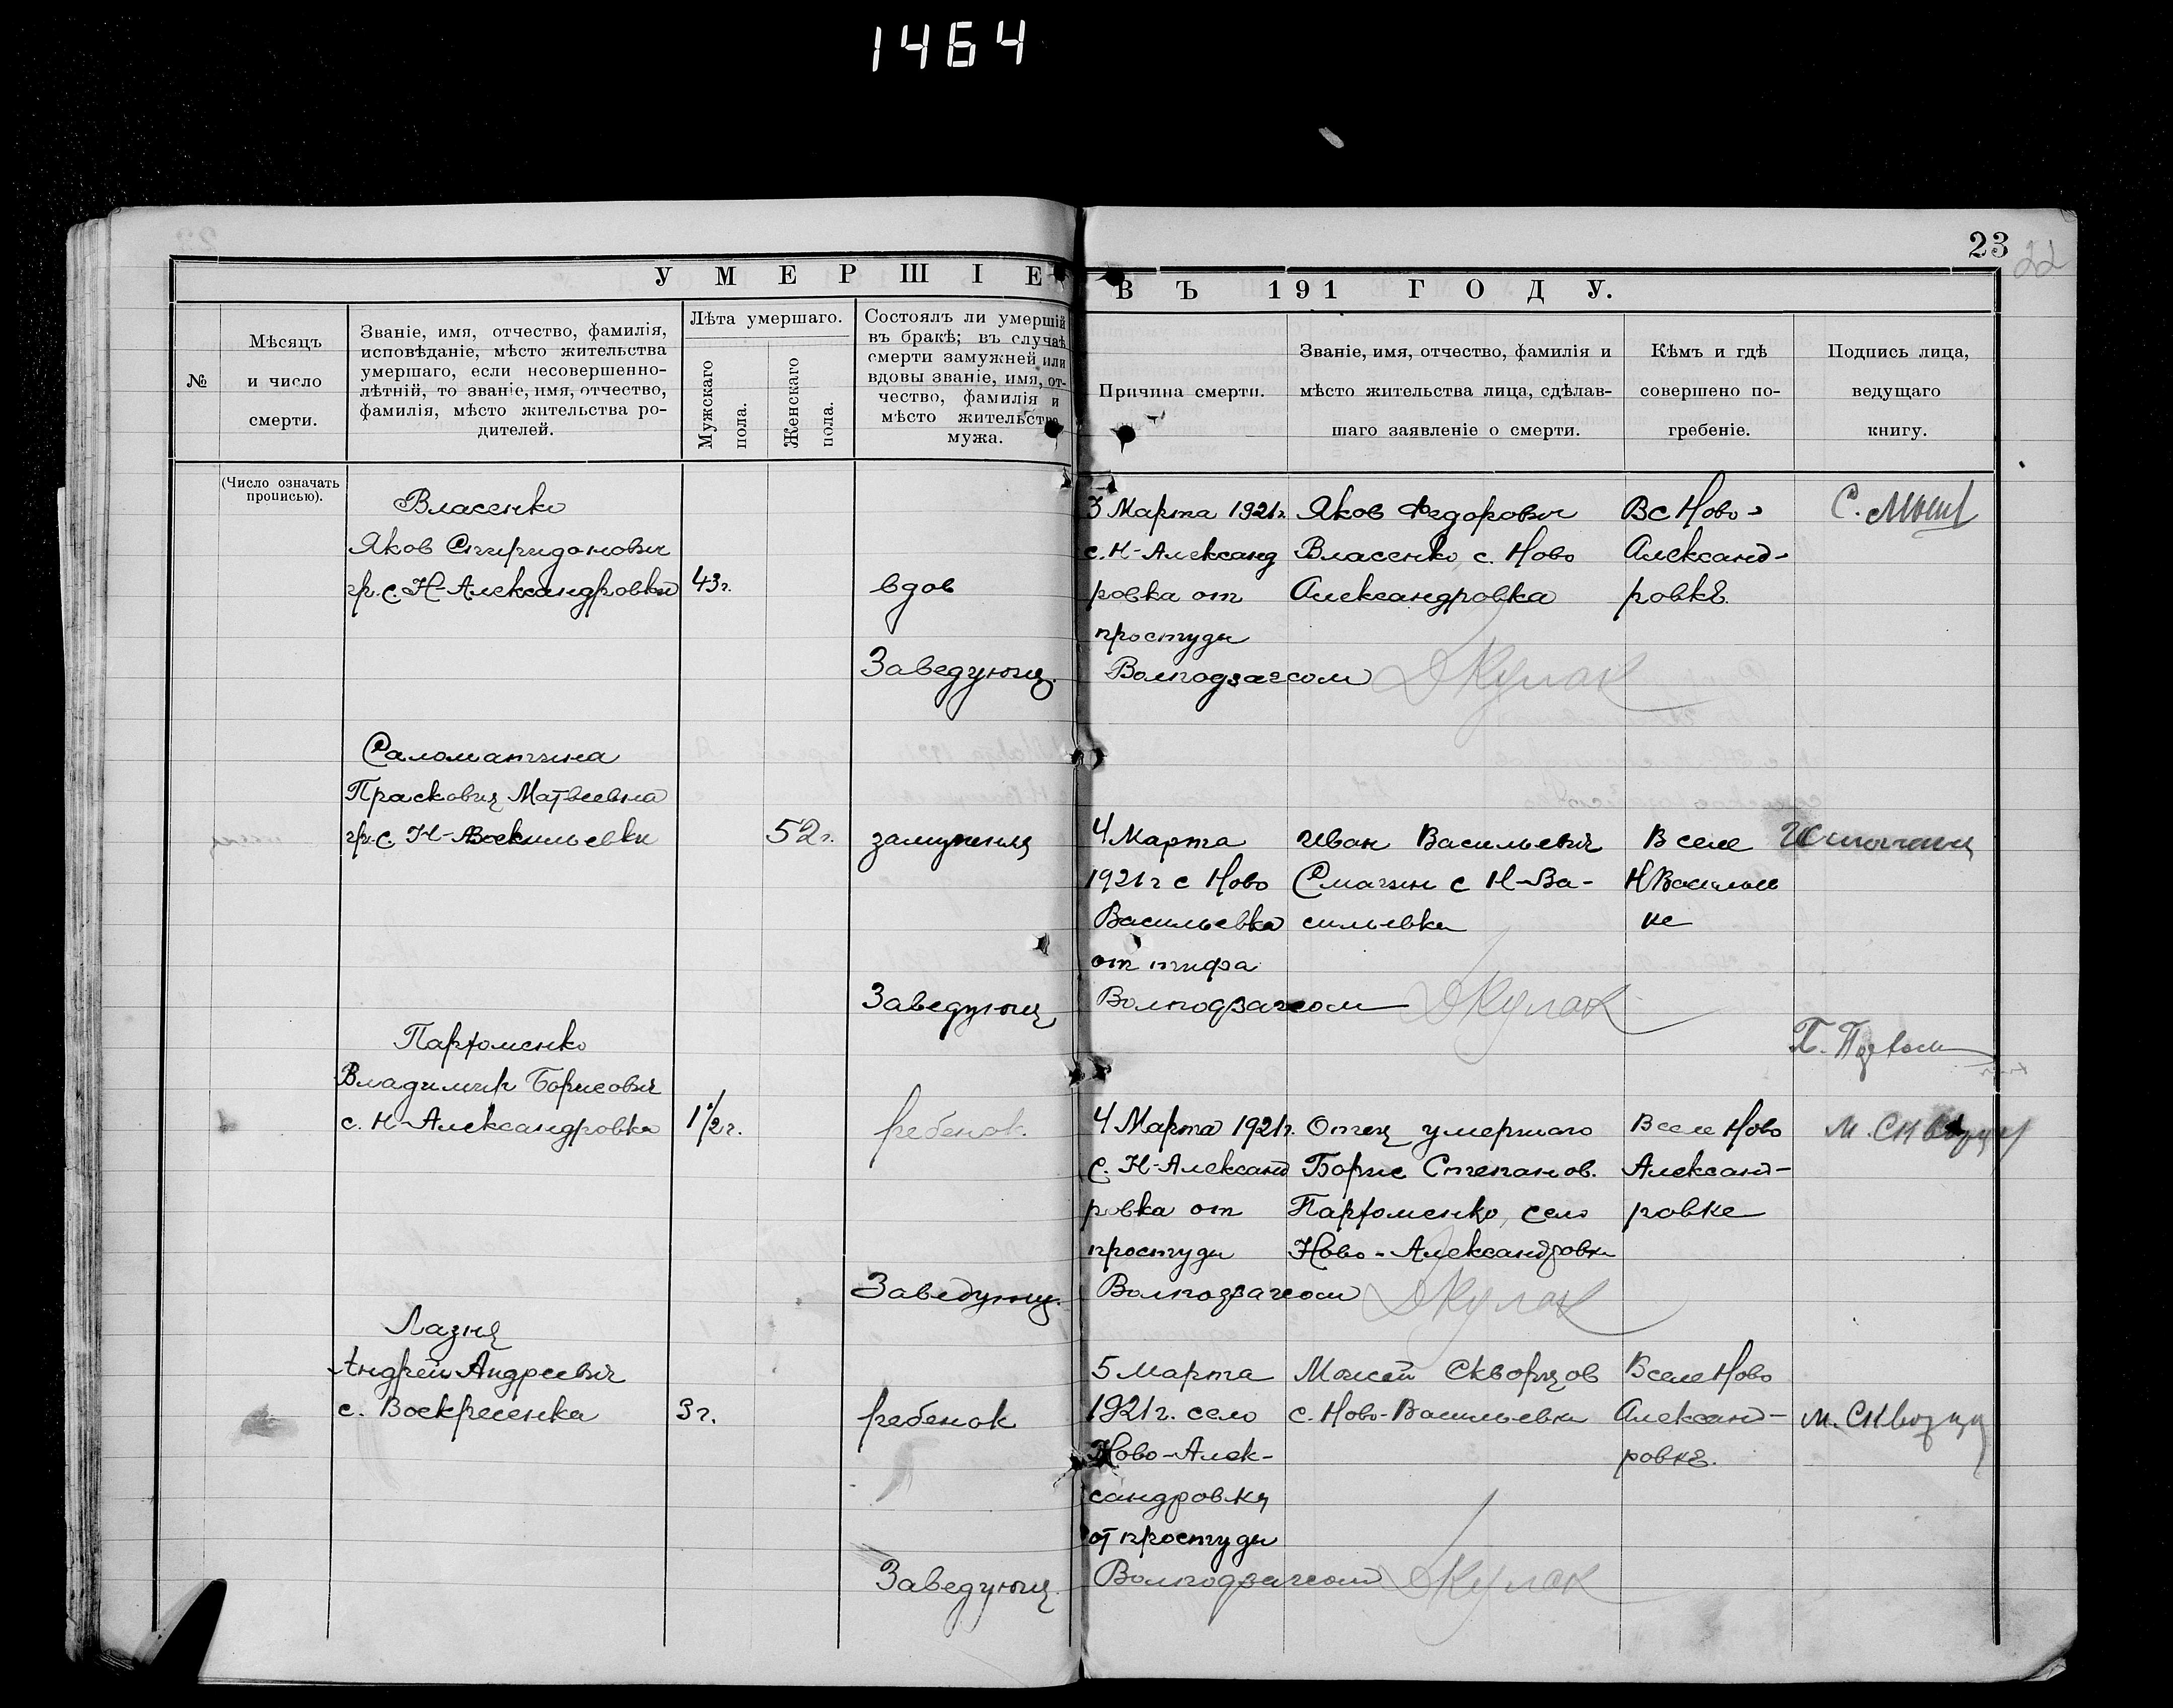 1464
23
22
УМЕРШІЕ ВЪ 191 ГОДУ.
№
Мѣсяцъ
и число
смерти.
Званіе, имя, отчество, фамилія,
исповѣданіе, мѣсто жительства
умершаго, если несовершенно-
лѣтній, то званіе, имя, отчество,
фамилія, мѣсто жительства ро-
дителей.
Лѣта умершаго.
Мужскаго
пола.
Женскаго
пола.
Состоялъ ли умершій
въ бракѣ; въ случаѣ
смерти замужней или
вдовы званіе, имя, от-
чество, фамилія и
мѣсто жительства
мужа.
Причина смерти.
Званіе, имя, отчество, фамилія и
мѣсто жительства лица, сдѣлав-
шаго заявленіе о смерти.
Кѣмъ и гдѣ
совершено по-
гребеніе.
Подпись лица,
ведущаго
книгу.
(Число означать
прописью).
Власенко
Яков Спиридонович
гр. с. Н-Александровки
43 г.
вдов
3 Марта 1921 г.
с. Н-Александ
ровка от
простуди
Яков Федорович
Власенко, с. Ново
Александровка
В с Ново-
Александ-
ровкѣ.
Заведующ. Волподзагсом Кулак
Саломатина
Прасковия Матвеевна
гр. с. Н-Васильевки
52 г.
замужняя
4 Марта
1921 г с Ново
Васильевка
от тифа
Иван Васильевич
Смагин с Н-Ва-
сильевка
В селе
Н Василье
ке
Заведующ Волподзагсом Кулак
Пархоменко
Владимир Борисович
с. Н-Александровка
1 1/2 г.
ребенок
4 Марта 1921 г.
С. Н-Александ
ровка от
простуди
Отец умершаго
Борис Степанов.
Пархоменко, село
Ново-Александровка
В селе Ново
Александ-
ровке
М. Скворцов
Заведующ. Волподзагсом Кулак
Лазня
Андрей Андреевич
с. Воскресенка
3 г.
ребенок
5 марта
1921 г. село
Ново-Алек-
сандровка
от простуди
Моисей Скворцов
с. Ново-Васильевка
В селе Ново
Александ-
ровкѣ.
М. Скворцов
Заведующ. Волподзагсом Кулак